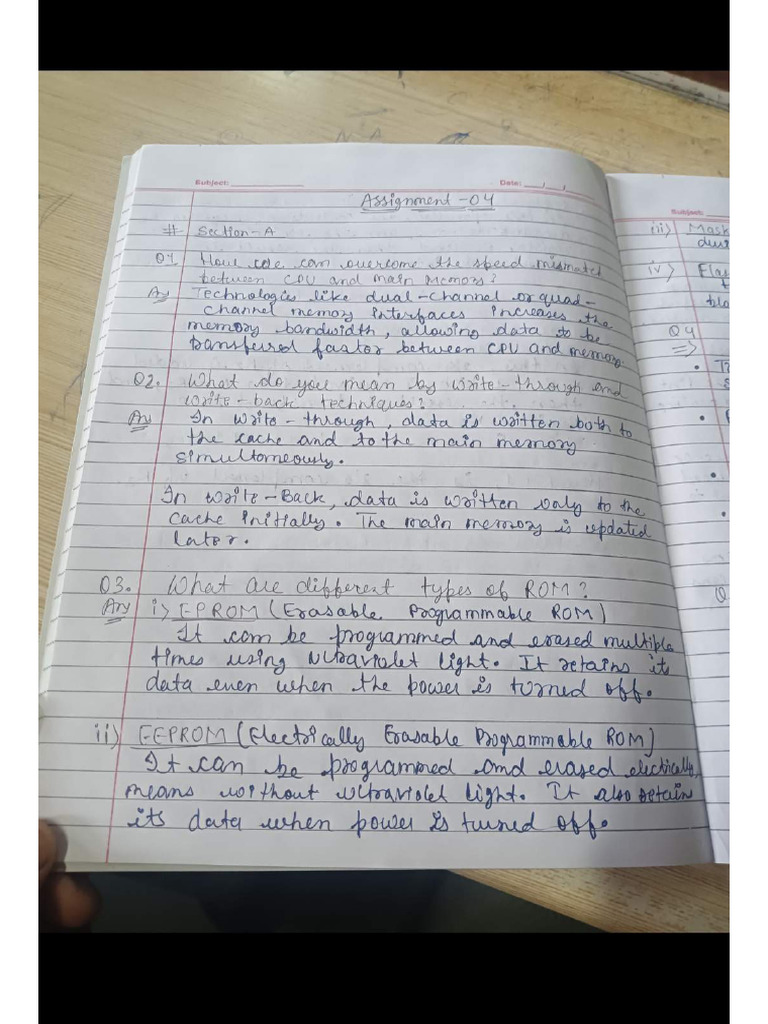 Subject:
Date: __/__/__
Assignment-04
# Section-A
Q1 How we can overcome the speed mismatch
between CPU and main Memory?
Ans Technologies like dual-channel or quad-
channel memory interfaces increases the
memory bandwidth, allowing data to be
transferred faster between CPU and memory.
Q2. What do you mean by write-through and
write-back techniques?
Ans In write-through, data is written both to
the cache and to the main memory
simultaneously.
In write-Back, data is written only to the
cache initially. The main memory is updated
later.
Q3. What are different types of ROM?
Ans i> EPROM (Erasable Programmable ROM)
It can be programmed and erased multiple
times using Ultraviolet light. It retains it
data even when the power is turned off.
ii) EEPROM (Electrically Erasable Programmable ROM)
It can be programmed and erased electically,
means without ultraviolet light. It also retain
its data when power is turned off.
Subject:
iii) Mask
iv)
Q4
=>